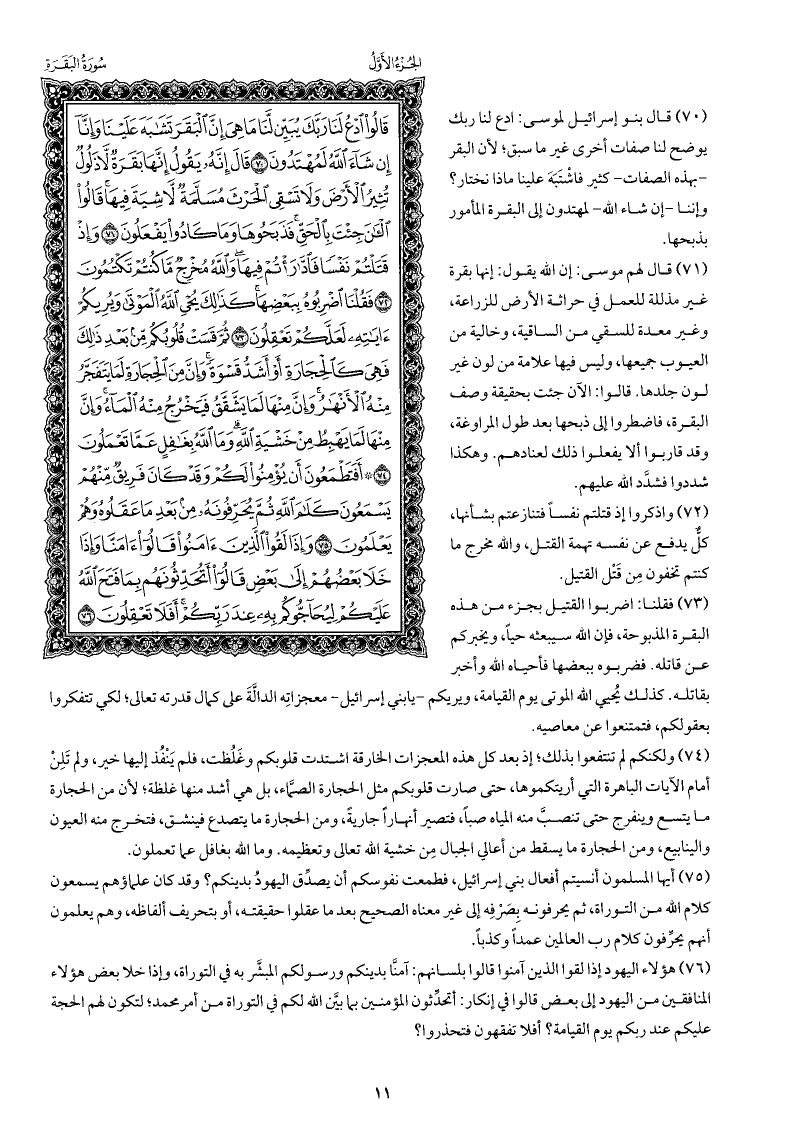 الجُزْءُ الأَوَّلُ
سُورَةُ البَقَرَةِ
قَالُوا۟ ٱدْعُ لَنَا رَبَّكَ يُبَيِّن لَّنَا مَا هِىَ إِنَّ ٱلْبَقَرَ تَشَٰبَهَ عَلَيْنَا وَإِنَّآ
إِن شَآءَ ٱللَّهُ لَمُهْتَدُونَ ٧٠ قَالَ إِنَّهُۥ يَقُولُ إِنَّهَا بَقَرَةٌ لَّا ذَلُولٌ
تُثِيرُ ٱلْأَرْضَ وَلَا تَسْقِى ٱلْحَرْثَ مُسَلَّمَةٌ لَّا شِيَةَ فِيهَا ۚ قَالُوا۟
ٱلْـَٰٔنَ جِئْتَ بِٱلْحَقِّ ۚ فَذَبَحُوهَا وَمَا كَادُوا۟ يَفْعَلُونَ ٧١ وَإِذْ
قَتَلْتُمْ نَفْسًا فَٱدَّٰرَْٰٔتُمْ فِيهَا ۖ وَٱللَّهُ مُخْرِجٌ مَّا كُنتُمْ تَكْتُمُونَ
٧٢ فَقُلْنَا ٱضْرِبُوهُ بِبَعْضِهَا ۚ كَذَٰلِكَ يُحْىِ ٱللَّهُ ٱلْمَوْتَىٰ وَيُرِيكُمْ
ءَايَٰتِهِۦ لَعَلَّكُمْ تَعْقِلُونَ ٧٣ ثُمَّ قَسَتْ قُلُوبُكُم مِّنۢ بَعْدِ ذَٰلِكَ
فَهِىَ كَٱلْحِجَارَةِ أَوْ أَشَدُّ قَسْوَةً ۚ وَإِنَّ مِنَ ٱلْحِجَارَةِ لَمَا يَتَفَجَّرُ
مِنْهُ ٱلْأَنْهَٰرُ ۚ وَإِنَّ مِنْهَا لَمَا يَشَّقَّقُ فَيَخْرُجُ مِنْهُ ٱلْمَآءُ ۚ وَإِنَّ
مِنْهَا لَمَا يَهْبِطُ مِنْ خَشْيَةِ ٱللَّهِ ۗ وَمَا ٱللَّهُ بِغَٰفِلٍ عَمَّا تَعْمَلُونَ
٧٤ ۞ أَفَتَطْمَعُونَ أَن يُؤْمِنُوا۟ لَكُمْ وَقَدْ كَانَ فَرِيقٌ مِّنْهُمْ
يَسْمَعُونَ كَلَٰمَ ٱللَّهِ ثُمَّ يُحَرِّفُونَهُۥ مِنۢ بَعْدِ مَا عَقَلُوهُ وَهُمْ
يَعْلَمُونَ ٧٥ وَإِذَا لَقُوا۟ ٱلَّذِينَ ءَامَنُوا۟ قَالُوٓا۟ ءَامَنَّا وَإِذَا
خَلَا بَعْضُهُمْ إِلَىٰ بَعْضٍ قَالُوٓا۟ أَتُحَدِّثُونَهُم بِمَا فَتَحَ ٱللَّهُ
عَلَيْكُمْ لِيُحَآجُّوكُم بِهِۦ عِندَ رَبِّكُمْ ۚ أَفَلَا تَعْقِلُونَ ٧٦
(٧٠) قال بنو إسرائيل لموسى: ادع لنا ربك
يوضح لنا صفات أخرى غير ما سبق؛ لأن البقر
-بهذه الصفات- كثير فاشْتَبَهَ علينا ماذا نختار؟
وإننا -إن شاء الله- لمهتدون إلى البقرة المأمور
بذبحها.
(٧١) قال لهم موسى: إن الله يقول: إنها بقرة
غير مذللة للعمل في حراثة الأرض للزراعة،
وغير معدة للسقي من الساقية، وخالية من
العيوب جميعها، وليس فيها علامة من لون غير
لون جلدها. قالوا: الآن جئت بحقيقة وصف
البقرة، فاضطروا إلى ذبحها بعد طول المراوغة،
وقد قاربوا ألا يفعلوا ذلك لعنادهم. وهكذا
شددوا فشدَّد الله عليهم.
(٧٢) واذكروا إذ قتلتم نفساً فتنازعتم بشأنها،
كلٌّ يدفع عن نفسه تهمة القتل، والله مخرج ما
كنتم تخفون مِن قَتْل القتيل.
(٧٣) فقلنا: اضربوا القتيل بجزء من هذه
البقرة المذبوحة، فإن الله سيبعثه حياً، ويخبركم
عن قاتله. فضربوه ببعضها فأحياه الله وأخبر
بقاتله. كذلك يُحيي الله الموتى يوم القيامة، ويريكم -يابني إسرائيل- معجزاتِه الدالَّةَ على كمال قدرته تعالى؛ لكي تتفكروا
بعقولكم، فتمتنعوا عن معاصيه.
(٧٤) ولكنكم لم تنتفعوا بذلك؛ إذ بعد كل هذه المعجزات الخارقة اشتدت قلوبكم وغَلُظت، فلم يَنْفُذ إليها خير، ولم تَلِنْ
أمام الآيات الباهرة التي أريتكموها، حتى صارت قلوبكم مثل الحجارة الصمَّاء، بل هي أشد منها غلظة؛ لأن من الحجارة
ما يتسع وينفرج حتى تنصبَّ منه المياه صباً، فتصير أنهاراً جاريةً، ومن الحجارة ما يتصدع فينشق، فتخرج منه العيون
والينابيع، ومن الحجارة ما يسقط من أعالي الجبال مِن خشية الله تعالى وتعظيمه. وما الله بغافل عما تعملون.
(٧٥) أيها المسلمون أنسيتم أفعال بني إسرائيل، فطمعت نفوسكم أن يصدِّق اليهودُ بدينكم؟ وقد كان علماؤهم يسمعون
كلام الله من التوراة، ثم يحرفونه بِصَرْفِه إلى غير معناه الصحيح بعد ما عقلوا حقيقته، أو بتحريف ألفاظه، وهم يعلمون
أنهم يحرِّفون كلام رب العالمين عمداً وكذباً.
(٧٦) هؤلاء اليهود إذا لقوا الذين آمنوا قالوا بلسانهم: آمنَّا بدينكم ورسولكم المبشَّر به في التوراة، وإذا خلا بعض هؤلاء
المنافقين من اليهود إلى بعض قالوا في إنكار: أتحدِّثون المؤمنين بما بيَّن الله لكم في التوراة من أمر محمد؛ لتكون لهم الحجة
عليكم عند ربكم يوم القيامة؟ أفلا تفقهون فتحذروا؟
١١